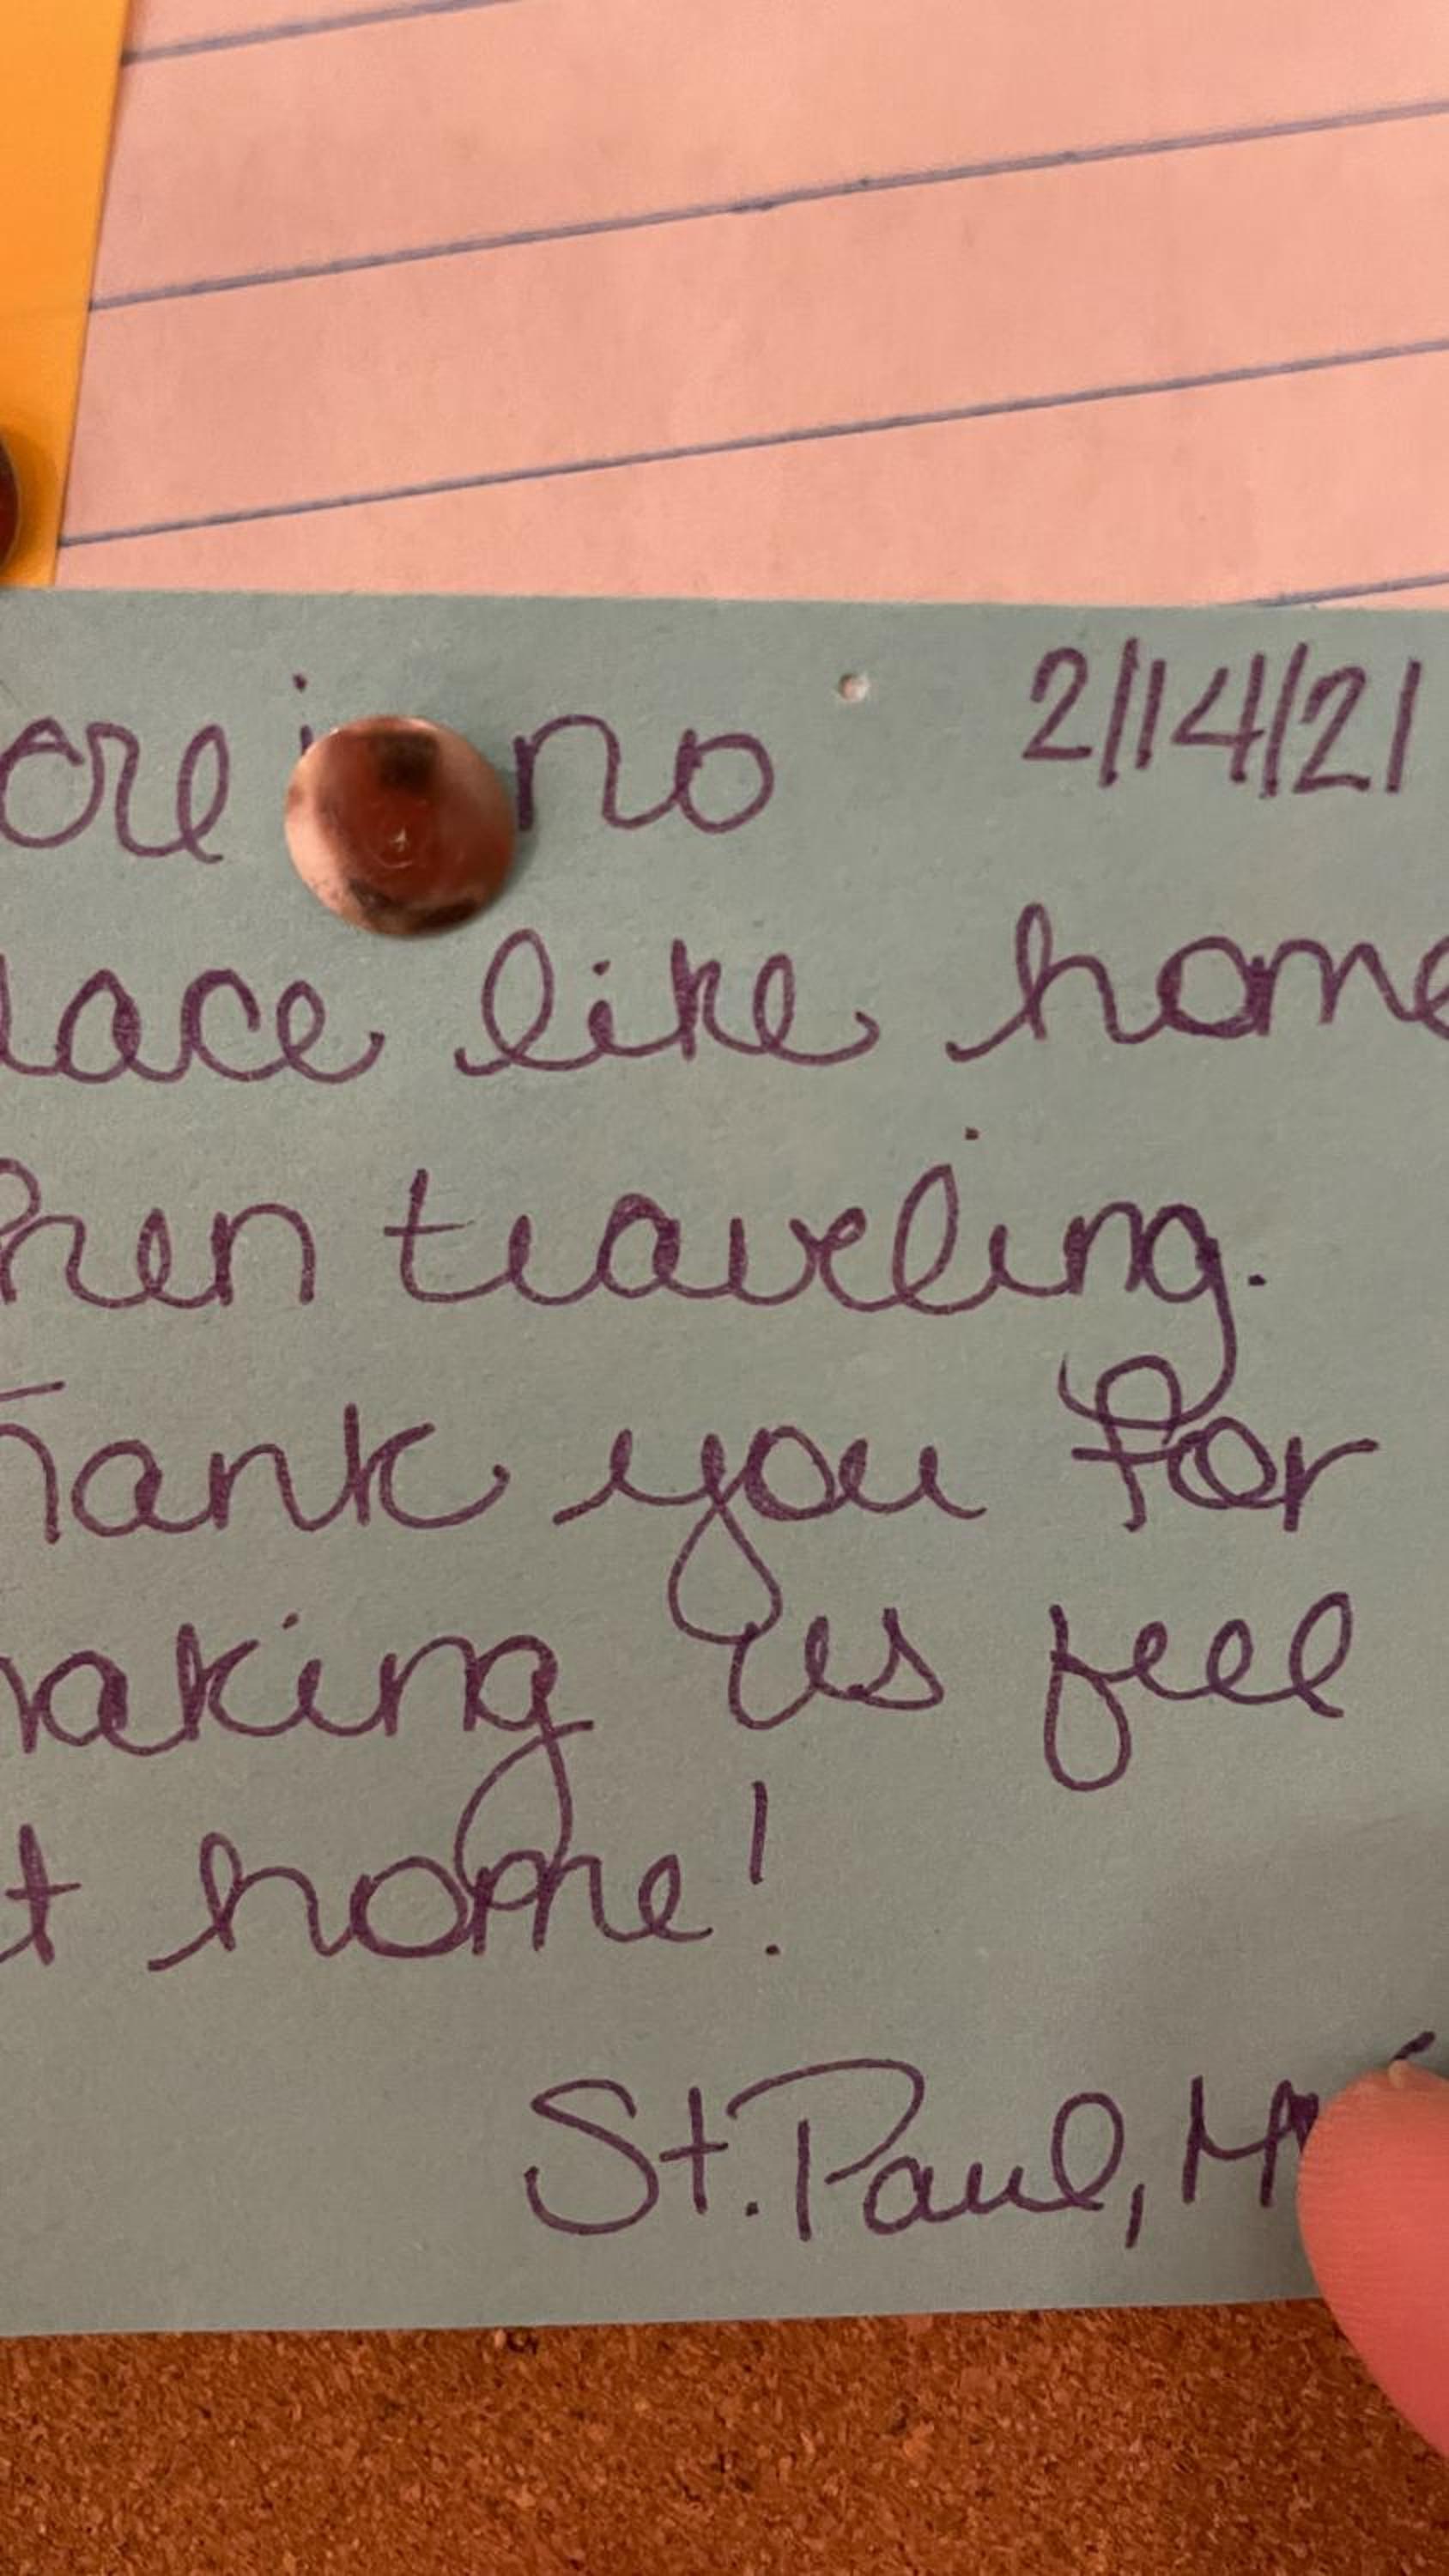 2/14/21
ere i no
lace like home
hen traveling.
hank you for
making us feel
t home!
St. Paul, M